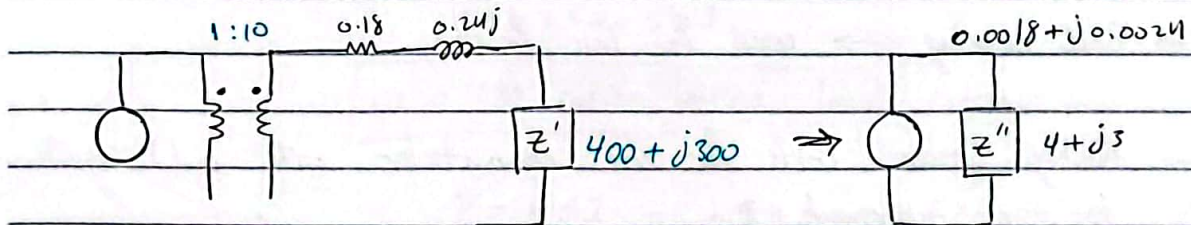 1:10 0.18 0.24j 0.0018+j0.0024
Z' 400+j300 ⇒ Z" 4+j3